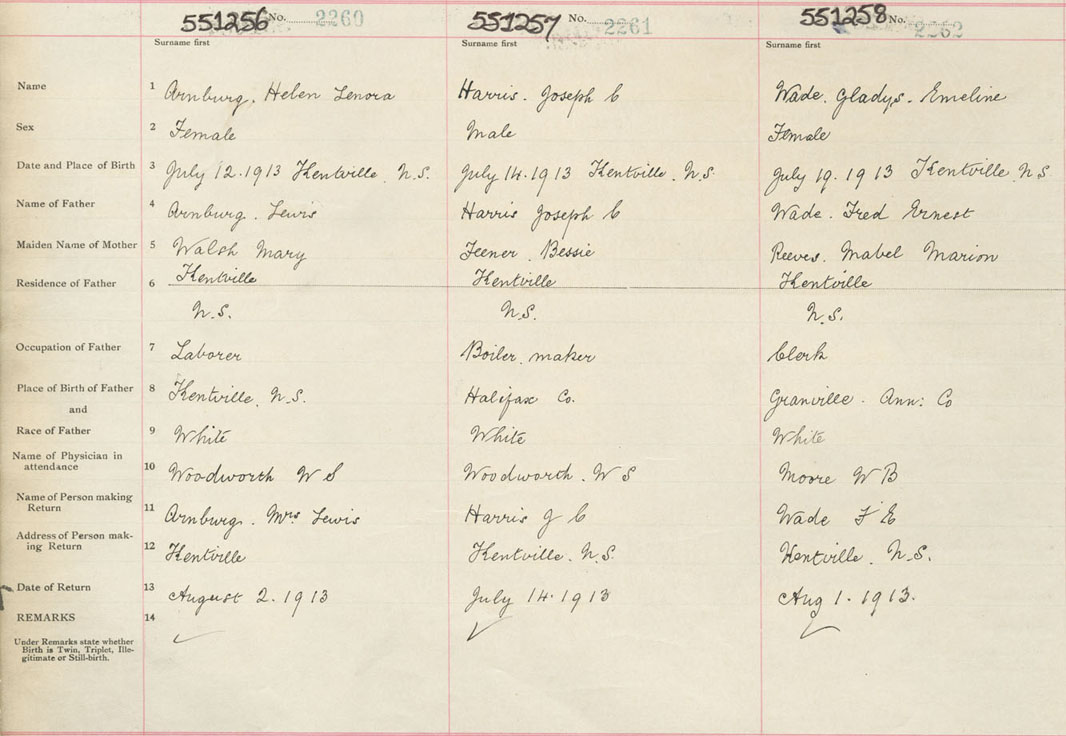 551256 No. 2260 551257 No. 2261 551258 No. 2262
Surname first Surname first Surname first
Name 1 Arnburg. Helen Lenora Harris. Joseph C Wade. Gladys. Emeline
Sex 2 Female Male Female
Date and Place of Birth 3 July 12.1913 Kentville. N.S. July 14.1913 Kentville. N.S. July 19.1913 Kentville N.S
Name of Father 4 Arnburg. Lewis Harris Joseph C Wade. Fred Ernest
Maiden Name of Mother 5 Walsh Mary Feener. Bessie Reeves. Mabel Marion
Residence of Father 6 Kentville Kentville Kentville
N.S. N.S. N.S.
Occupation of Father 7 Laborer Boiler maker Clerk
Place of Birth of Father 8 Kentville. N.S. Halifax Co. Granville. Ann: Co
and
Race of Father 9 White White White
Name of Physician in
attendance 10 Woodworth W S Woodworth. W S Moore W B
Name of Person making
Return 11 Arnburg. Mrs Lewis Harris J C Wade F E
Address of Person mak-
ing Return 12 Kentville Kentville. N.S. Kentville. N.S.
Date of Return 13 August 2.1913 July 14.1913 Aug 1.1913.
REMARKS 14
Under Remarks state whether
Birth is Twin, Triplet, Ille-
gitimate or Still-birth.